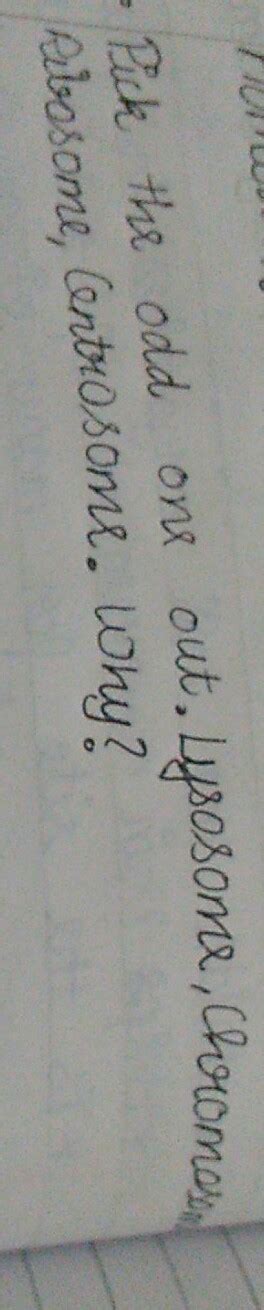 Pick the odd one out. Lysosome, Chromosome
Ribosome, Centrosome. Why?